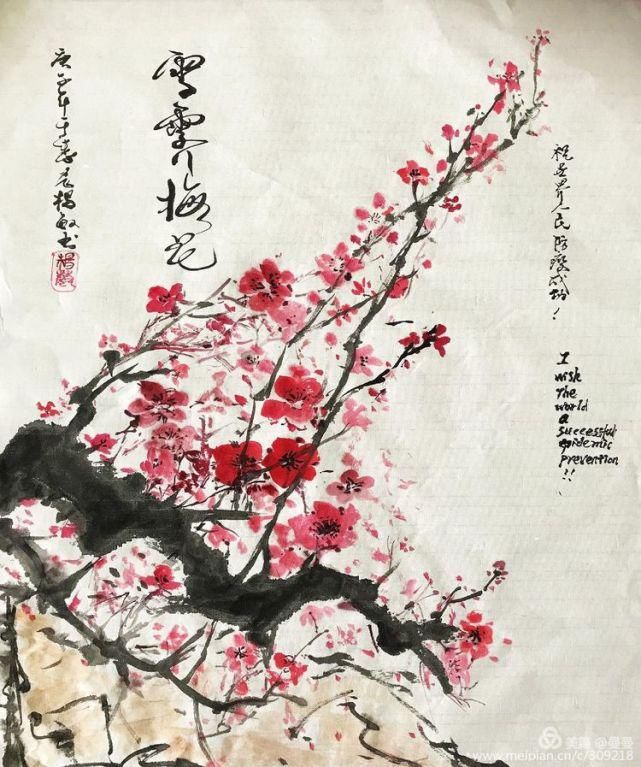 雪霁梅花
庚子年于杨敏书
祝世界人民防疫成功！
I
wish
The
world
a
successful
epidemic
prevention!!
美篇 @曼曼
www.meipian.cn/c/309218